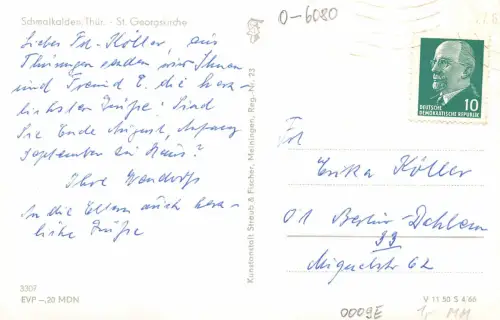 Schmalkalden, Thür. - St. Georgskirche
Liebes Frl. Köller, aus
Thüringen senden wir Ihnen
und Freund E. die herz-
lichsten Grüße! Sind
Sie Ende August, Anfang
September zu Haus?
Ihre Wendorfs
An die Eltern auch herz-
liche Grüße
3307
EVP –,20 MDN
Kunstanstalt Straub & Fischer, Meiningen, Reg.-Nr. 23
0-6080
10
DEUTSCHE
DEMOKRATISCHE REPUBLIK
Frl
Erika Köller
01 Berlin-Dahlem
33
Miquelstr 62
V 11 50 S 4/66
0009E